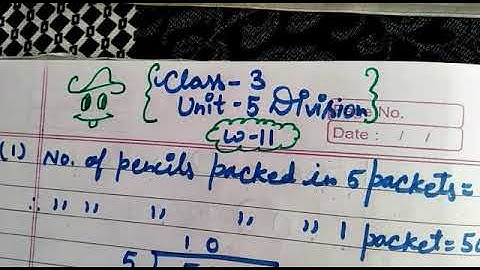 Class - 3
Unit - 5 Division
No.
W-11
Date : / /
(1) No. of pencils packed in 5 packets =
∴ " " " " " 1 packet = 50
10
5